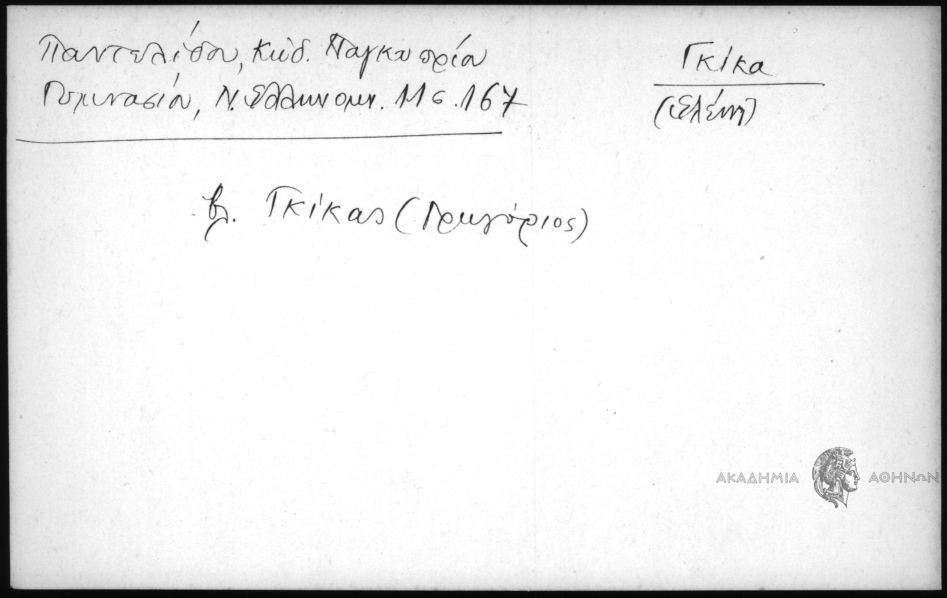 Παντελίδου, Κώδ. Παγκυπρίου
Γυμνασίου, Ν. Ελληνομν. 11 σ. 167
Γκίκα
(Ελένη)
βλ. Γκίκας (Γρηγόριος)
ΑΚΑΔΗΜΙΑ ΑΘΗΝΩΝ